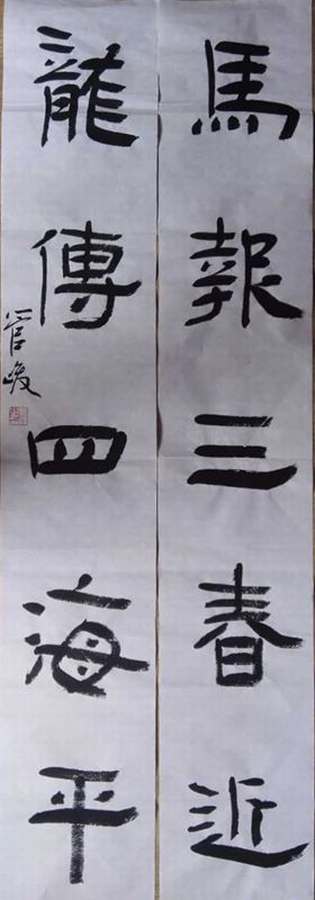 馬報三春近
龍傳四海平
管峻